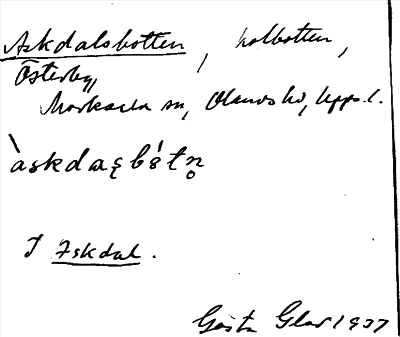 Askdalsbotten, kolbotten,
Österby,
Morkarla sn, Olands hd, Upps. l.
àskdaɷbótn̥
I Askdal.
Gösta Glas 1937